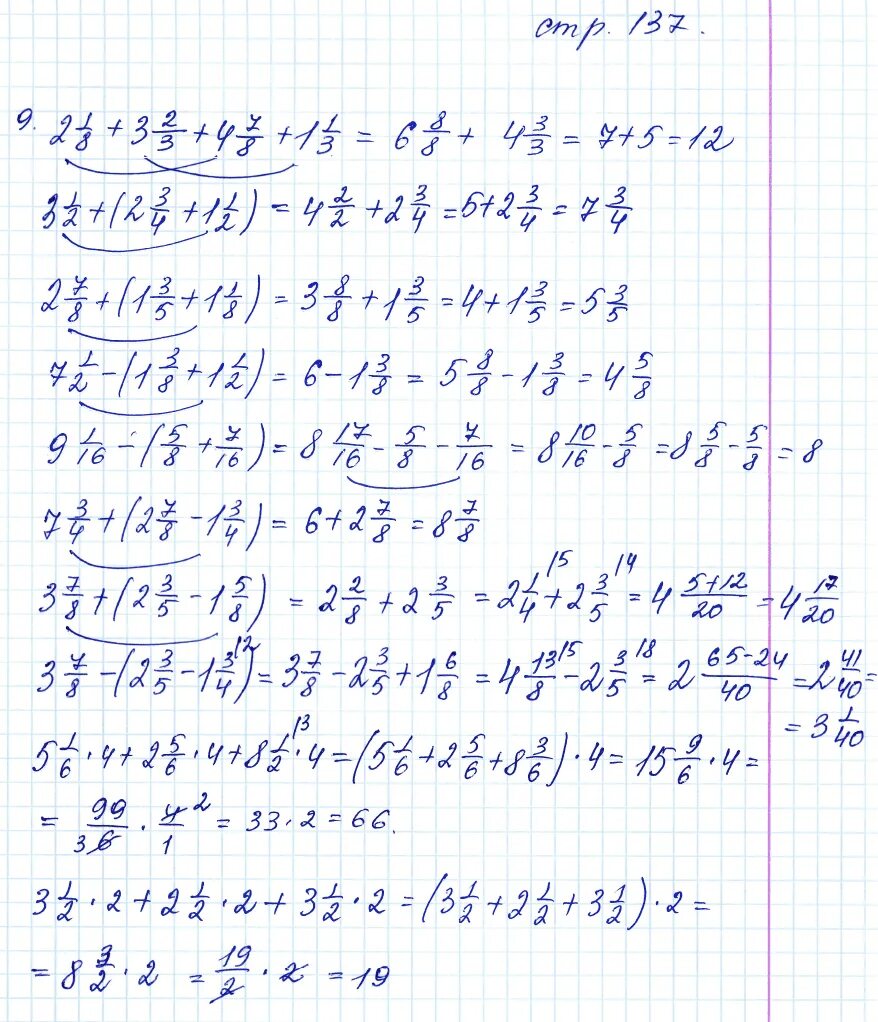 стр. 137.
9. 2 1/8 + 3 2/3 + 4 7/8 + 1 1/3 = 6 8/8 + 4 3/3 = 7 + 5 = 12
3 1/2 + (2 3/4 + 1 1/2) = 4 2/2 + 2 3/4 = 5 + 2 3/4 = 7 3/4
2 7/8 + (1 3/5 + 1 1/8) = 3 8/8 + 1 3/5 = 4 + 1 3/5 = 5 3/5
7 1/2 - (1 3/8 + 1 1/2) = 6 - 1 3/8 = 5 8/8 - 1 3/8 = 4 5/8
9 1/16 - (5/8 + 7/16) = 8 17/16 - 5/8 - 7/16 = 8 10/16 - 5/8 = 8 5/8 - 5/8 = 8
7 3/4 + (2 7/8 - 1 3/4) = 6 + 2 7/8 = 8 7/8
3 7/8 + (2 3/5 - 1 5/8) = 2 2/8 + 2 3/5 = 2 1/4 \5 + 2 3/5 \4 = 4 (5+12)/20 = 4 17/20
3 7/8 - (2 3/5 - 1 3/4 \2) = 3 7/8 - 2 3/5 + 1 6/8 = 4 13/8 \5 - 2 3/5 \8 = 2 (65-24)/40 = 2 41/40 =
= 3 1/40
5 1/6 · 4 + 2 5/6 · 4 + 8 1/2 \3 · 4 = (5 1/6 + 2 5/6 + 8 3/6) · 4 = 15 9/6 · 4 =
= 99/6 3 · 4/1 2 = 33 · 2 = 66.
3 1/2 · 2 + 2 1/2 · 2 + 3 1/2 · 2 = (3 1/2 + 2 1/2 + 3 1/2) · 2 =
= 8 3/2 · 2 = 19/2 · 2 = 19